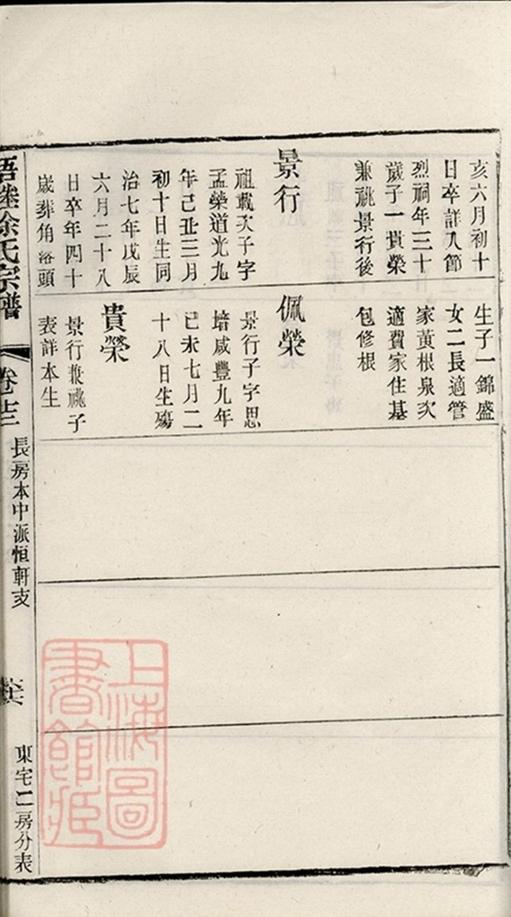 亥六月初十
日卒詳入節
烈祠年三十
歲子一貴榮
兼祧景行後
景行
祖載天子字
孟榮道光九
年己丑三月
初十日生同
治七年戊辰
六月二十八
日卒年四十
歲葬角落頭
生子一錦盛
女二長適管
家黃根泉次
適費家住基
包修根
佩榮
景行子字思
培咸豐九年
己未七月二
十八日生殤
貴榮
景行兼祧子
表詳本生
徐氏宗譜
長房本中派恒軒支
東宅二房分表
上海圖
書館藏